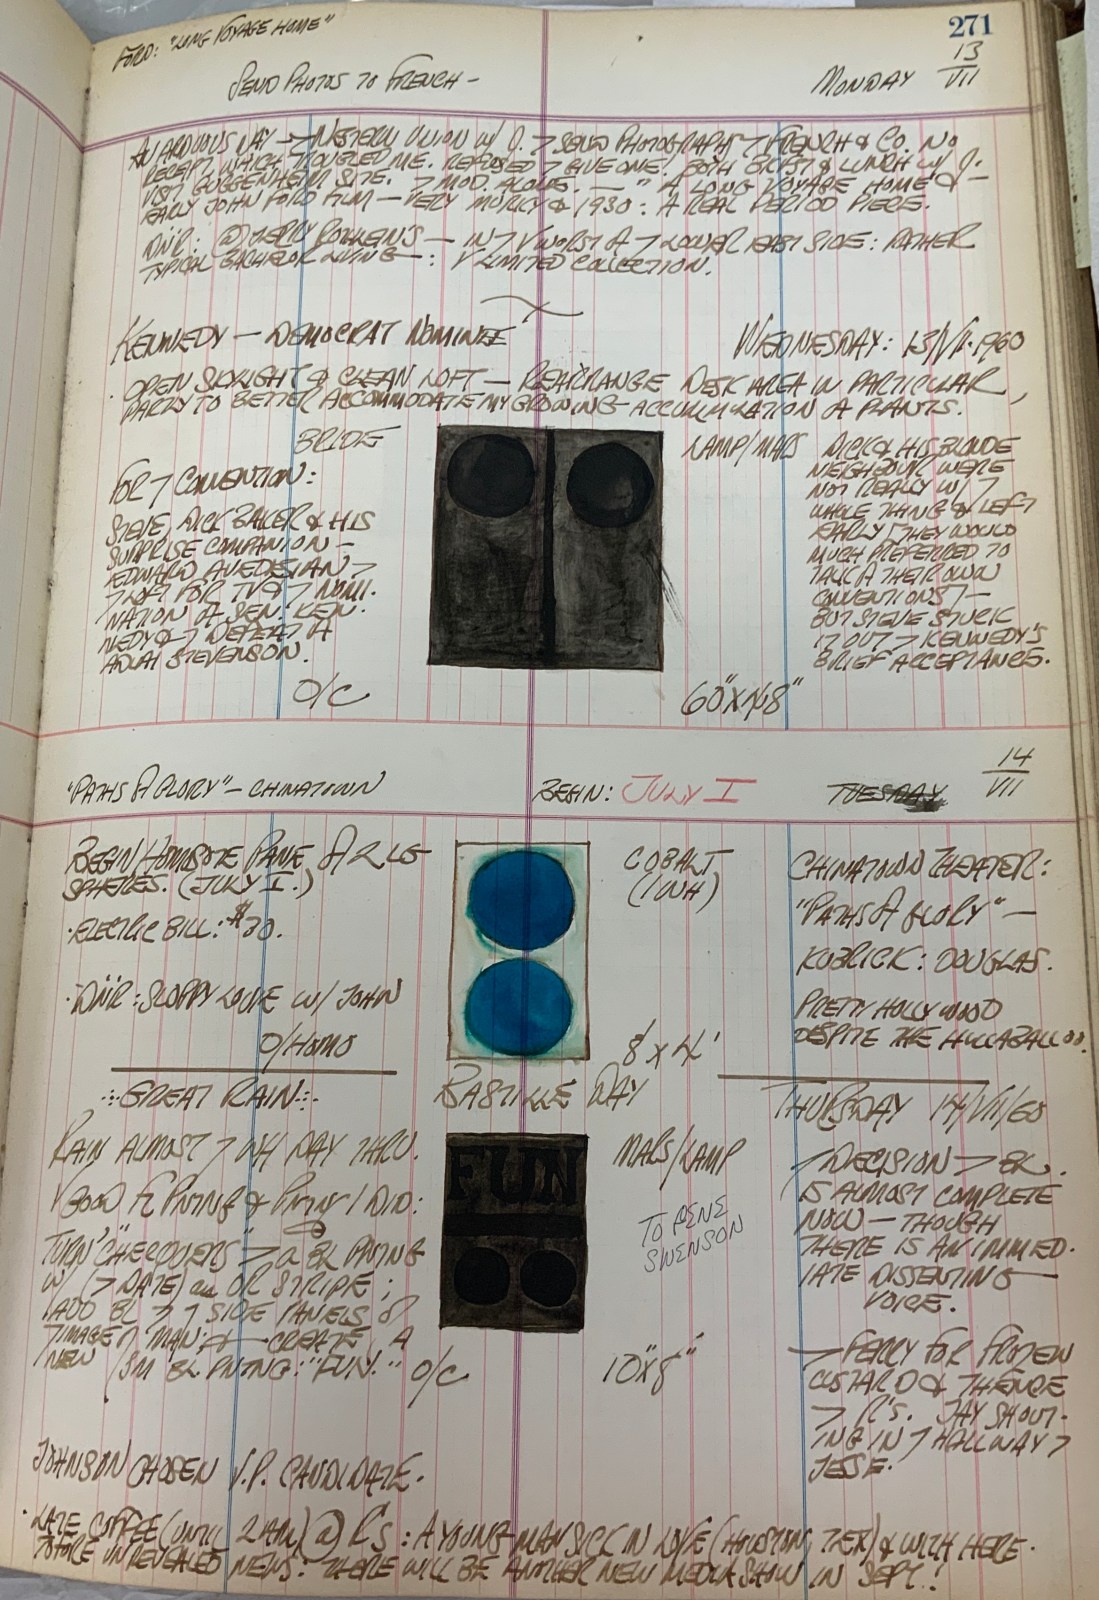 271
FORD: "LONG VOYAGE HOME"
SEND PHOTOS TO FRENCH —
MONDAY 13/VII
AN ARDUOUS DAY → WESTERN UNION W/ O. > SEND PHOTOGRAPHS > FRENCH & CO. NO
RECEIPT, WHICH TROUBLED ME. REFUSED > GIVE ONE. BOTH BRKFST & LUNCH W/ O.
VISIT GUGGENHEIM SITE. > MOD. ALONE. — "A LONG VOYAGE HOME" —
EARLY JOHN FORD FILM — VERY MURKY & 1930: A REAL PERIOD PIECE.
DNR: @ JERRY — IN > WORST OF > LOWER EAST SIDE: RATHER
TYPICAL BACHELOR LIVING —: V LIMITED COLLECTION.
KENNEDY — DEMOCRAT NOMINEE
WEDNESDAY: 13/VII.1960
· OPEN SKYLIGHT & CLEAN LOFT — REARRANGE DESK AREA IN PARTICULAR,
PARTLY TO BETTER ACCOMMODATE MY GROWING ACCUMULATION OF PLANTS.
BRIDE
FOR > CONVENTION:
STEVE, DICK BAKER & HIS
SURPRISE COMPANION —
EDWARD AVEDISIAN >
> LOFT FOR TV & > NOMI-
NATION OF SEN. KEN-
NEDY & > DEFEAT OF
ADLAI STEVENSON.
O/C
LAMP/MARS
60" X 48"
DICK & HIS BLONDE
NEIGHBOUR WERE
NOT REALLY W/ >
WHOLE THING & LEFT
EARLY, THEY WOULD
MUCH PREFERRED TO
TALK OF THEIR OWN
CONVENTIONS! —
BUT STEVE STUCK
IT OUT > KENNEDY'S
BRIEF ACCEPTANCE.
"PATHS OF GLORY" — CHINATOWN
BEGIN: JULY I
TUESDAY
14/VII
BEGIN/HOMOSOTE PANE OF 2 LG
SPHERES. (JULY I.)
· ELECTRIC BILL: $30.
· DNR: SLOPPY LOUIE W/ JOHN
O/HOMO
COBALT
(1 WH)
8 X 4'
CHINATOWN THEATER:
"PATHS OF GLORY" —
KUBRICK: DOUGLAS.
PRETTY HOLLYWOOD
DESPITE THE HULLABALLOO.
GREAT RAIN
BASTILLE DAY
THURSDAY 14/VII/60
RAIN ALMOST > WH DAY THRU.
V GOOD F PNTNG & PNTNG I DID:
TURN "CHEQUERS" > A BL PNTNG
W/ (> DATE) OR STRIPE;
ADD BL > > SIDE PANELS OF
> IMAGE OF MAN: & — CREATE A
NEW / SM BL PNTNG: "FUN." O/C
FUN
MARS/LAMP
TO RENE
SWENSON
10" X 8"
> DECISION > BL.
IS ALMOST COMPLETE
NOW — THOUGH
THERE IS AN IMMED-
IATE DISSENTING
VOICE.
→ FERRY FOR FROZEN
CUSTARD & THENCE
> R'S. JAY SHOUT-
ING IN > HALLWAY >
JESSE.
JOHNSON CHOSEN V.P. CANDIDATE.
· LATE COFFEE (UNTIL 2 AM) @ R'S: A YOUNG MAN SICK IN LOVE (HOUSTON, TEX) & WITH HERE-
TOFORE UNREVEALED NEWS: THERE WILL BE ANOTHER NEW MEDIA SHOW IN SEPT.!